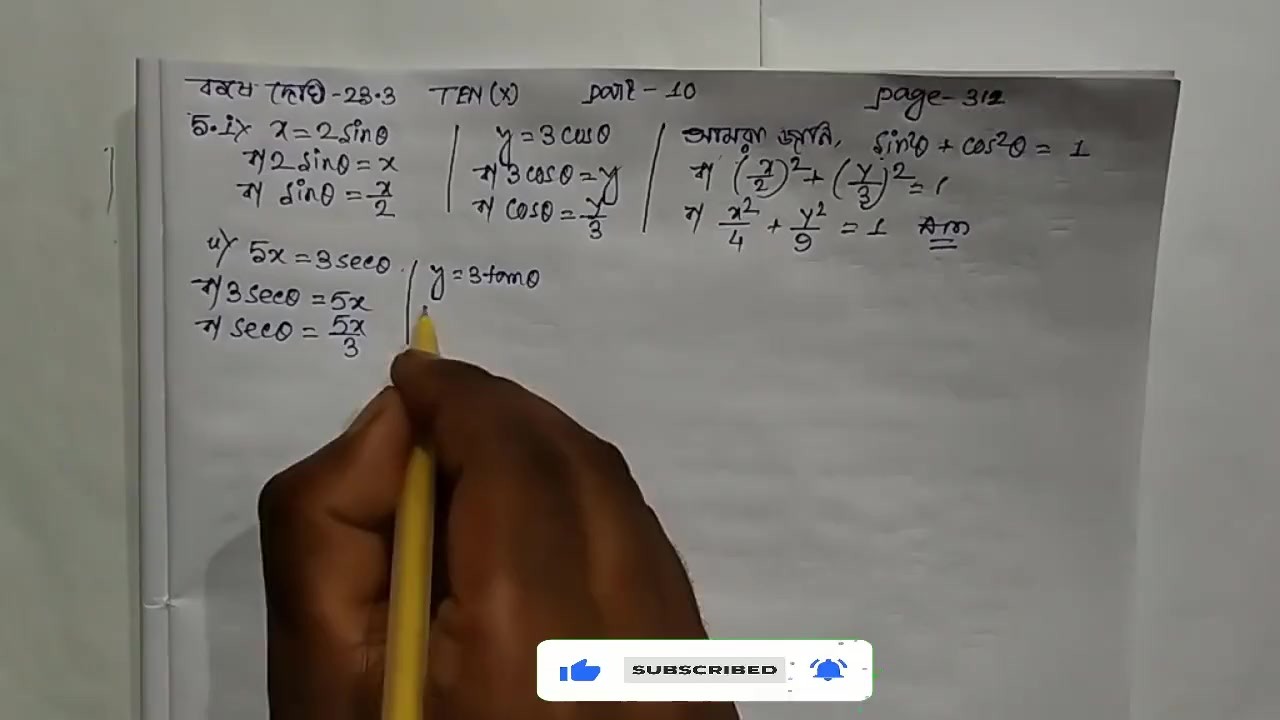 কষে দেখি - 23.3 TEN (X) part - 10 page - 312
5. i) x = 2 sinθ
⇒ 2 sinθ = x
⇒ sinθ = x/2
y = 3 cosθ
⇒ 3 cosθ = y
⇒ cosθ = y/3
আমরা জানি, sin²θ + cos²θ = 1
⇒ (x/2)² + (y/3)² = 1
⇒ x²/4 + y²/9 = 1 Ans
ii) 5x = 3 secθ
⇒ 3 secθ = 5x
⇒ secθ = 5x/3
y = 3 tanθ
SUBSCRIBED